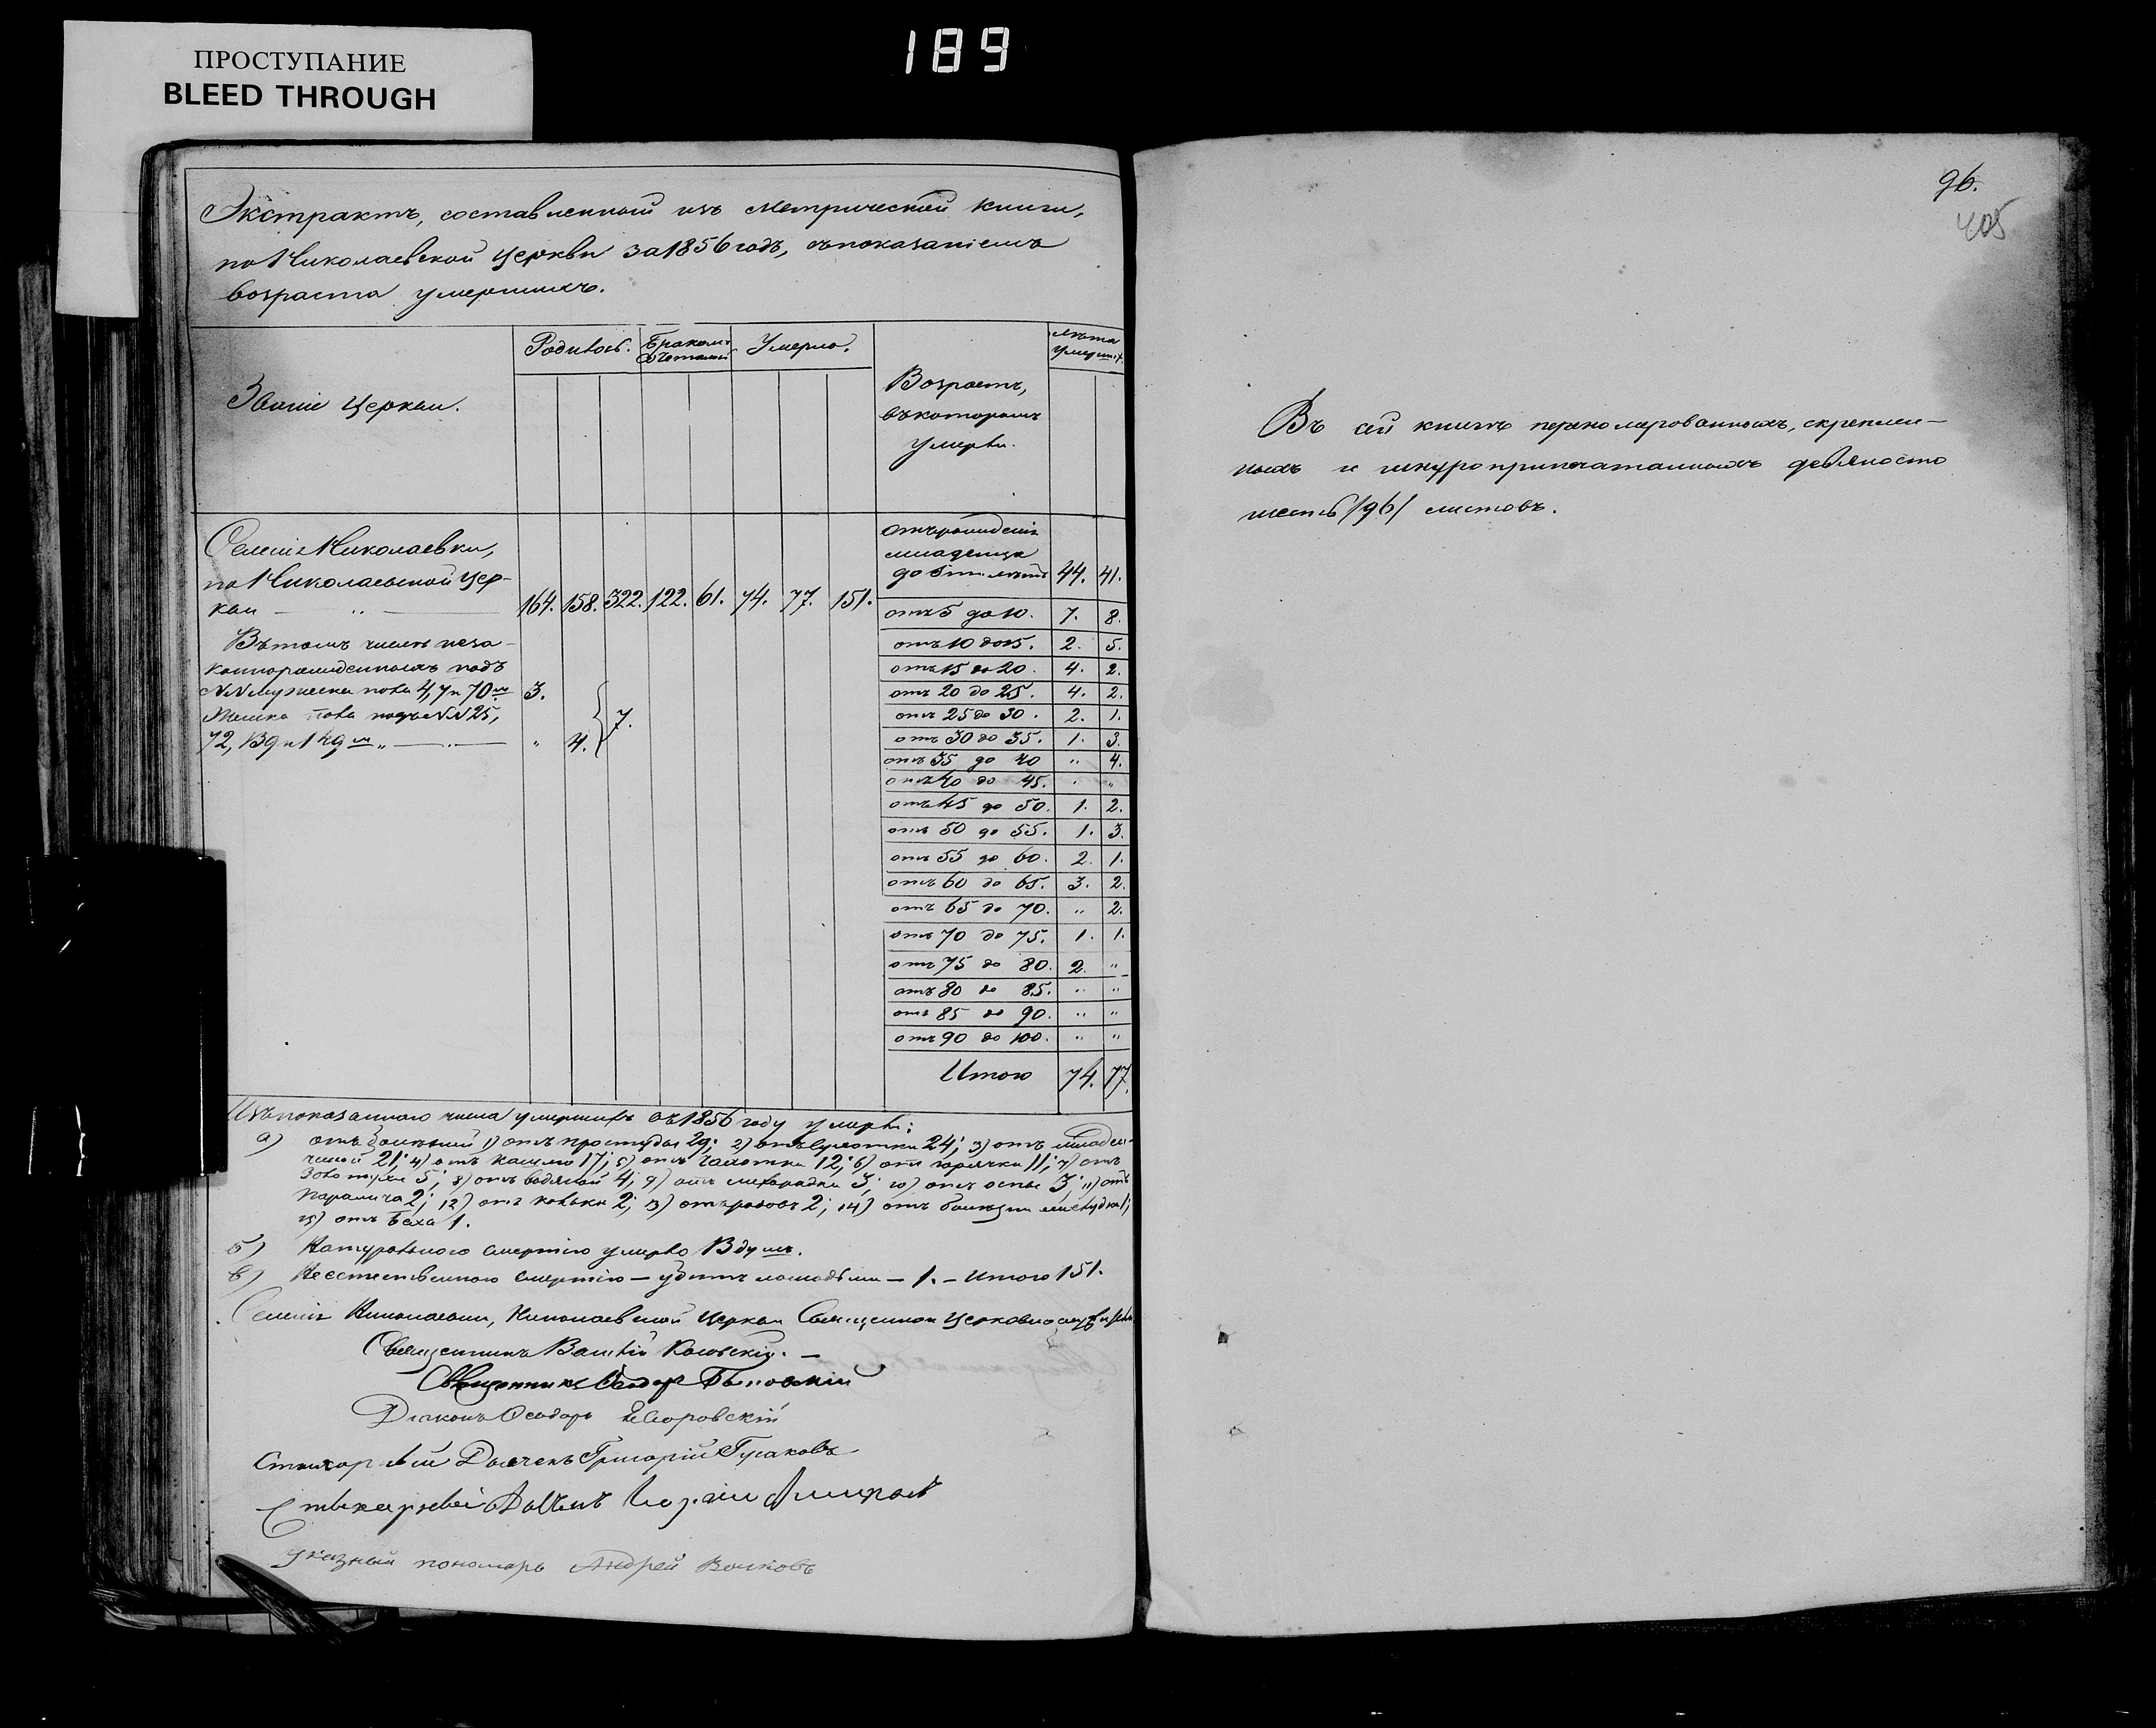 189
ПРОСТУПАНИЕ
BLEED THROUGH
Экстрактъ, составленный изъ метрической книги,
по Николаевской церкви за 1856 годъ, съ показаніемъ
возраста умершихъ.
Званіе церкви.
Родилось.
Бракомъ
сочетаній
Умерло.
Возрастъ,
въ которомъ
умерли.
лѣта
умерших.
Селенія Николаевки,
по Николаевской цер-
кви — „ — 164. 158. 322. 122. 61. 74. 77. 151.
Въ томъ числѣ неза-
коннорожденныхъ подъ
№№ мужеска пола 4, 7 и 70м 3.
Женска пола подъ №№ 25,
72, 139 и 149м „ — „ 4. 7.
отъ рожденія
младенца
до 5ти лѣтъ 44. 41.
отъ 5 до 10. 7. 8.
отъ 10 до 15. 2. 5.
отъ 15 до 20. 4. 2.
отъ 20 до 25. 4. 2.
отъ 25 до 30. 2. 1.
отъ 30 до 35. 1. 3.
отъ 35 до 40 „ 4.
отъ 40 до 45. „ „
отъ 45 до 50. 1. 2.
отъ 50 до 55. 1. 3.
отъ 55 до 60. 2. 1.
отъ 60 до 65. 3. 2.
отъ 65 до 70. „ 2.
отъ 70 до 75. 1. 1.
отъ 75 до 80. 2. „
отъ 80 до 85. „ „
отъ 85 до 90. „ „
отъ 90 до 100. „ „
Итого 74. 77.
Изъ показаннаго числа умершихъ въ 1856 году умерли:
а) отъ болѣзней 1) отъ простуды 29; 2) отъ сухотки 24; 3) отъ младен-
ческой 21; 4) отъ кашлю 17; 5) отъ чахотки 12; 6) отъ горячки 11; 7) отъ
золотухи 5; 8) отъ водяной 4; 9) отъ лихорадки 3; 10) отъ оспы 3; 11) отъ
паралича 2; 12) отъ колики 2; 13) отъ родовъ 2; 14) отъ болѣзни желудка 1;
15) отъ 1.
б) Натуральною смертію умерло 13 душъ.
в) Неестественною смертію — убитъ лошадьми — 1. — Итого 151.
Селенія Николаевки, Николаевской церкви Священно и церковнослужители
Священникъ Василій
Священникъ Ѳеодоръ
Діаконъ Ѳеодоръ
Стихарный Дьячекъ Григорій Гусаковъ
Стихарный Дьячекъ
Указный пономарь Андрей Волковъ
96.
405
Въ сей книгѣ перенумерованныхъ, скреплен-
ныхъ и шнуроприпечатанныхъ девяносто
шесть /96/ листовъ.